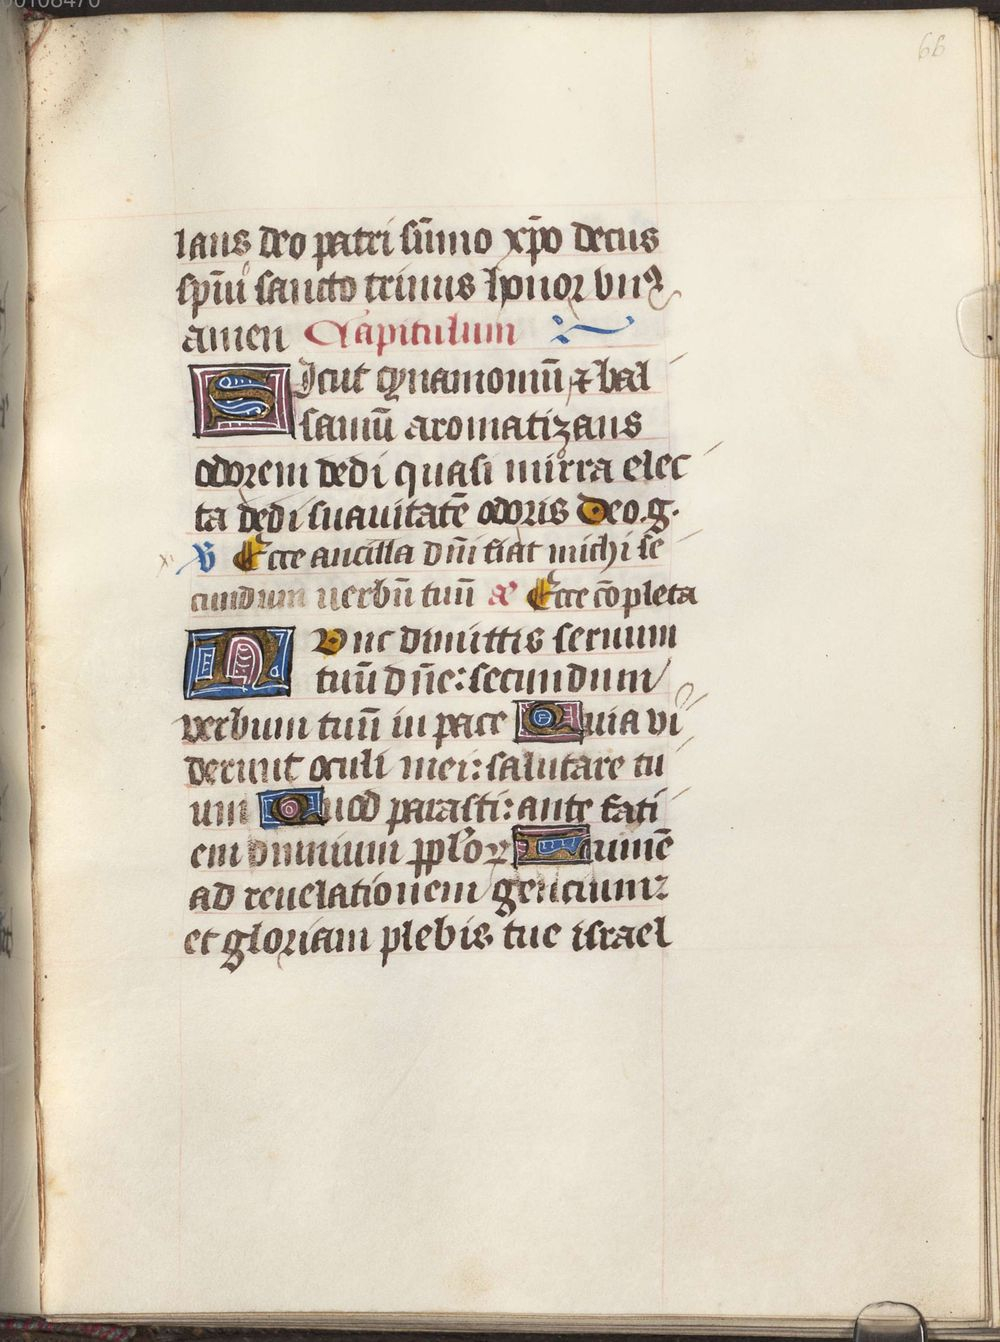 00108470
66
laus deo patri sūmo xp̄o decus
sp̄uī sancto trinus honor vnꝰ
amen Capitulum
Sicut cynamomū ⁊ bal
samū aromatizans
odorem dedi quasi mirra elec
ta dedi suauitatē odoris Deo.g.
℣ Ecce ancilla dn̄i fiat michi se
cundum uerbū tuū æ Ecce cōpleta
Nunc dimittis seruum
tuū dn̄e: secundum
verbum tuū in pace Quia vi
derunt oculi mei: salutare tu
um Quod parasti: ante fati
em omnium pploꝝ Lumē
ad reuelationem gencium:
et gloriam plebis tue israel